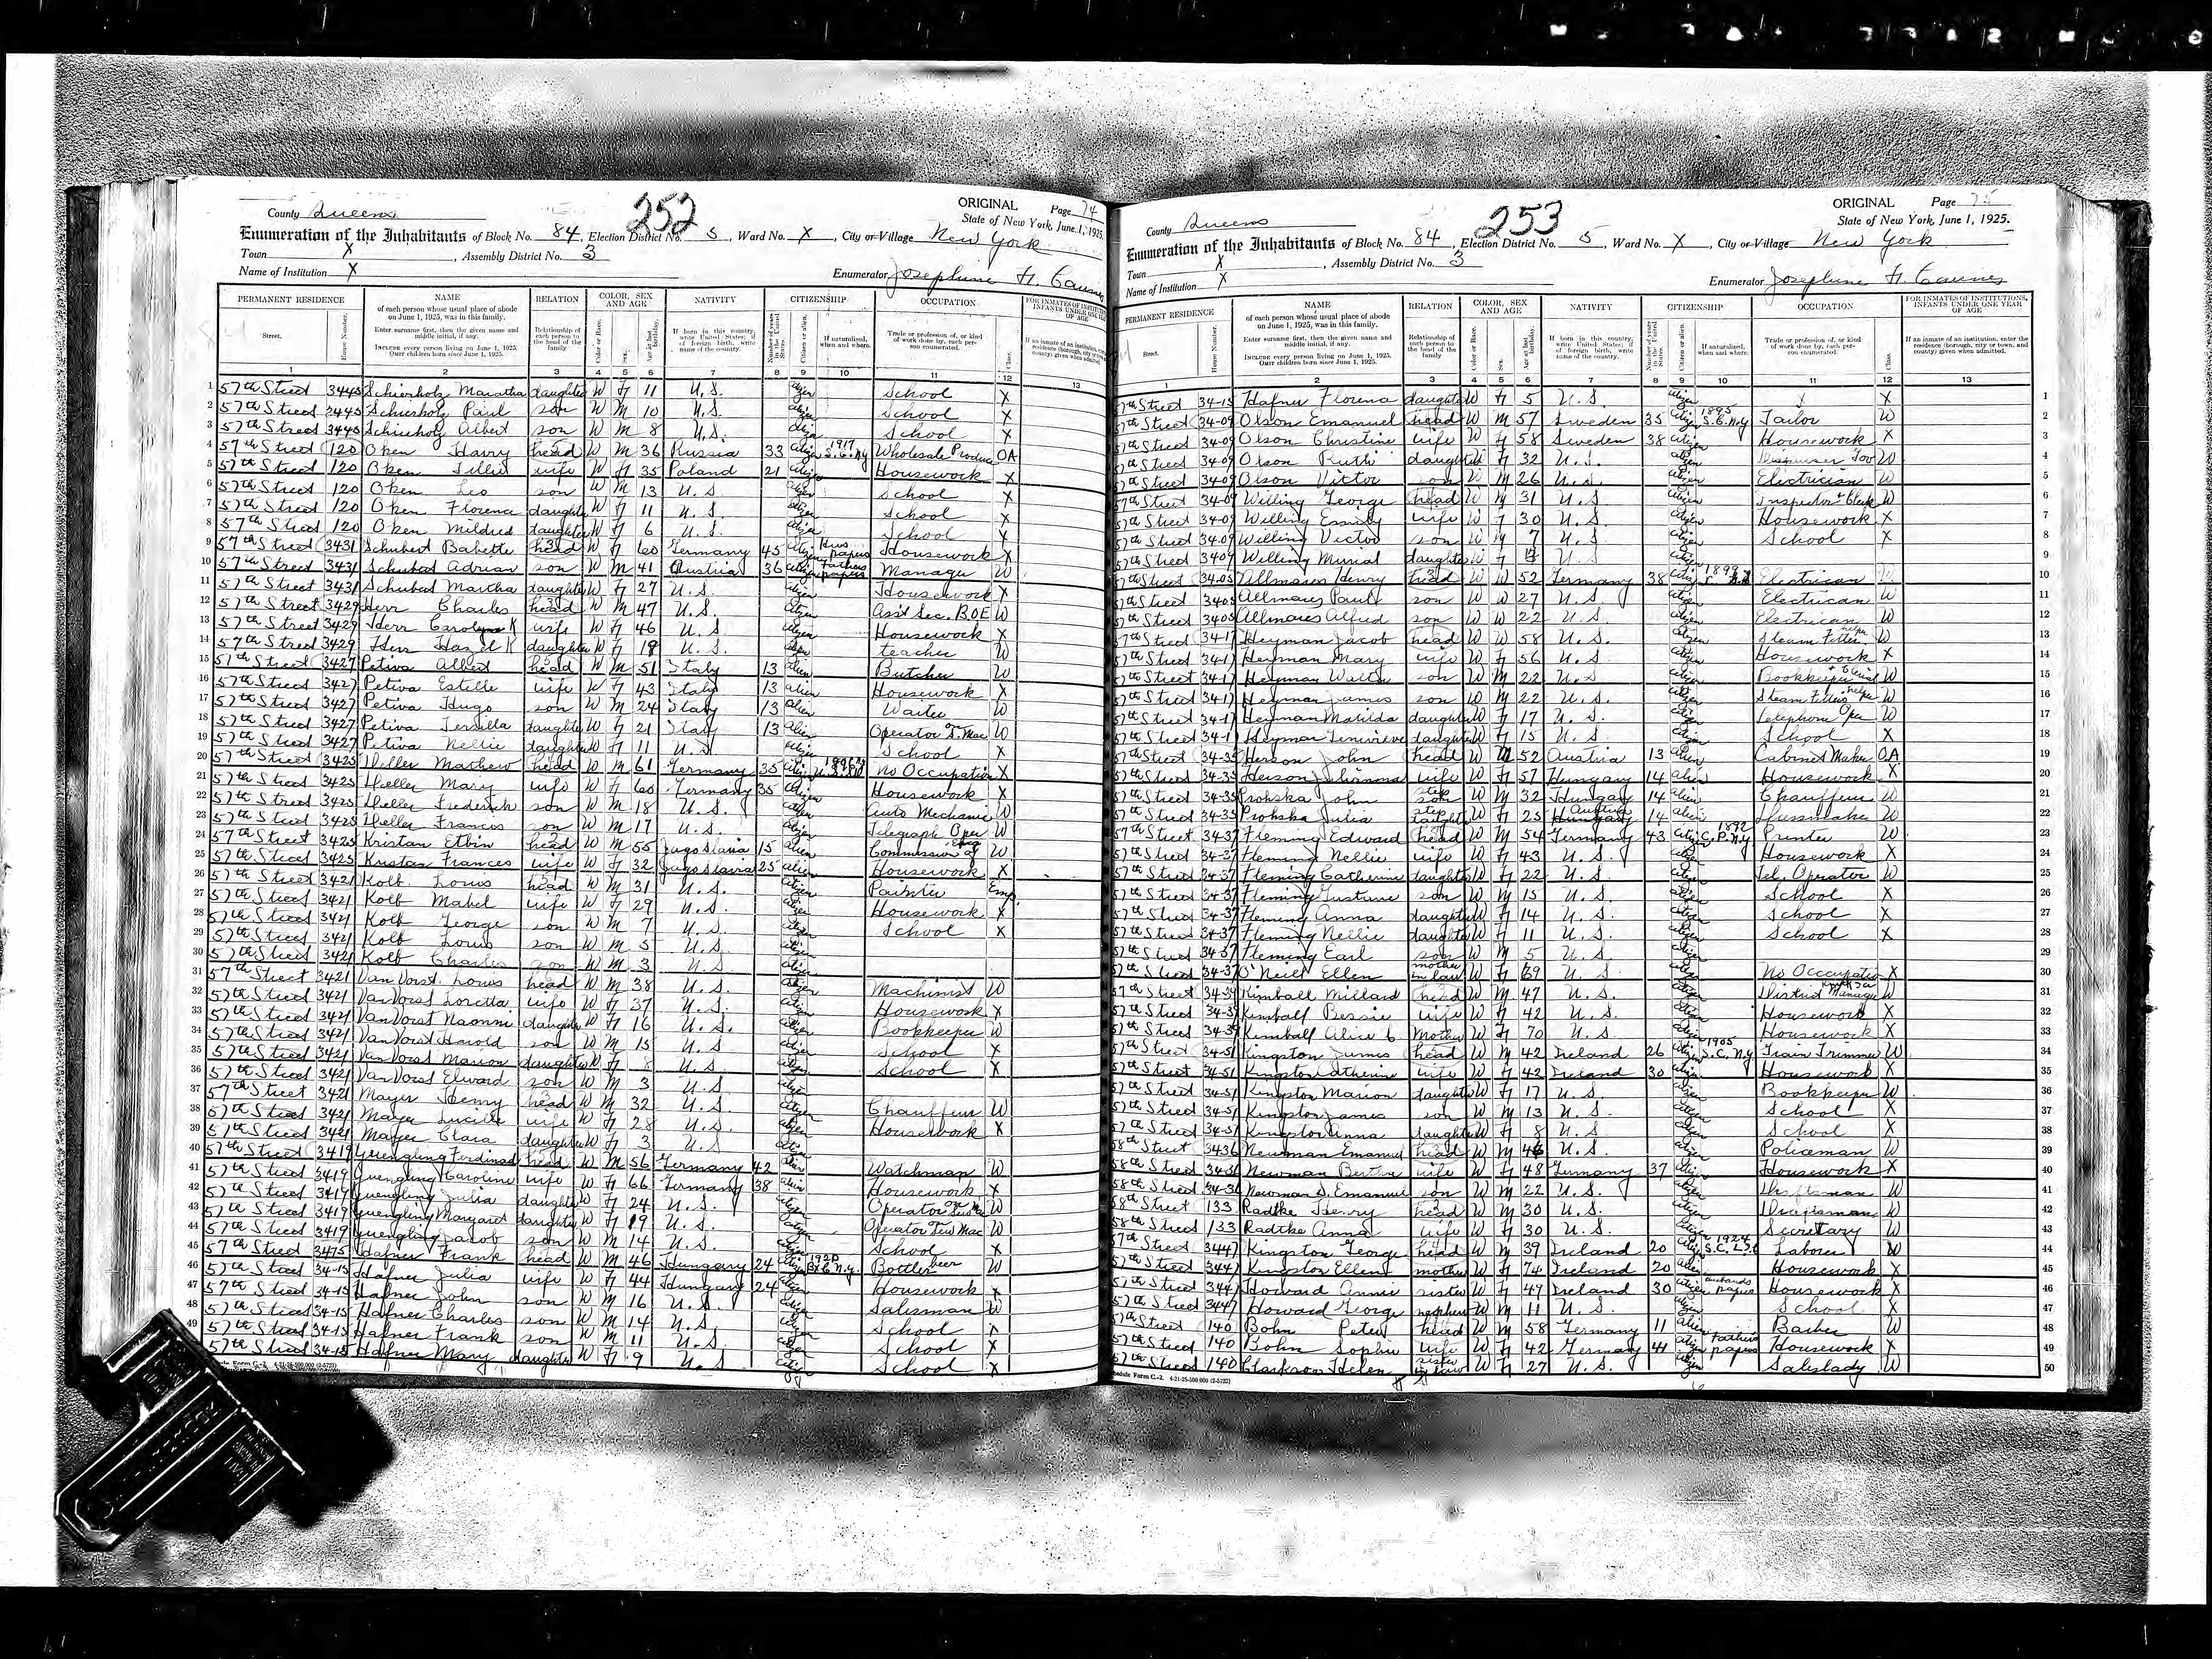 252
ORIGINAL Page 74
County Queens State of New York, June 1, 1925.
Enumeration of the Inhabitants of Block No. 84, Election District No. 5, Ward No. X, City or Village New York
Town X, Assembly District No. 3
Name of Institution X Enumerator Josephine H.
PERMANENT RESIDENCE NAME RELATION COLOR, SEX AND AGE NATIVITY CITIZENSHIP OCCUPATION FOR INMATES OF INSTITUTIONS, INFANTS UNDER ONE YEAR OF AGE
Street. House Number. of each person whose usual place of abode on June 1, 1925, was in this family. Enter surname first, then the given name and middle initial, if any. INCLUDE every person living on June 1, 1925. OMIT children born since June 1, 1925. Relationship of each person to the head of the family Color or Race. Sex. Age at last birthday. If born in this country, write United States; if of foreign birth, write name of the country. Number of years in the United States. Citizen or alien. If naturalized, when and where. Trade or profession of, or kind of work done by, each person enumerated. Class.
1 2 3 4 5 6 7 8 9 10 11 12 13
1 57th Street 3445 Schierholz daughter W F 11 U.S. Citizen School X
2 57th Street 3445 Schierholz Paul son W M 10 U.S. Citizen School X
3 57th Street 3445 Schierholz Albert son W M 8 U.S. Citizen School X
4 57th Street 120 Oken Harry head W M 36 Russia 33 Citizen 1917 S.C. NY Wholesale Produce OA
5 57th Street 120 Oken Tillie wife W F 35 Poland 21 Citizen Housework X
6 57th Street 120 Oken Leo son W M 13 U.S Citizen School X
7 57th Street 120 Oken Florence daughter W F 11 U.S. Citizen School X
8 57th Street 120 Oken Mildred daughter W F 6 U.S. Citizen School X
9 57th Street 3431 Schubert Babette head W F 60 Germany 45 Citizen Hus papers Housework X
10 57th Street 3431 Schubert Adrian son W M 41 Austria 36 Citizen Fathers papers Manager W
11 57th Street 3431 Schubert Martha daughter W F 27 U.S. Citizen Housework X
12 57th Street 3429 Herr Charles head W M 47 U.S. Citizen Ass't Sec. B.O.E W
13 57th Street 3429 Herr Carolyn K wife W F 46 U.S Citizen Housework X
14 57th Street 3429 Herr Hazel K daughter W F 18 U.S. Citizen teacher W
15 57th Street 3427 Petiva Albert head W M 51 Italy 13 alien Butcher W
16 57th Street 3427 Petiva Estelle wife W F 43 Italy 13 alien Housework X
17 57th Street 3427 Petiva Hugo son W M 24 Italy 13 Alien Waiter W
18 57th Street 3427 Petiva daughter W F 21 Italy 13 Alien Operator on Mac W
19 57th Street 3427 Petiva Nellie daughter W F 11 U.S Citizen School X
20 57th Street 3425 Heller Mathew head W M 61 Germany 35 Citizen 1896 No Occupation X
21 57th Street 3425 Heller Mary wife W F 60 Germany 35 Citizen Housework X
22 57th Street 3425 Heller Frederick son W M 18 U.S. Citizen Auto Mechanic W
23 57th Street 3425 Heller Francis son W M 17 U.S. Citizen Telegraph Oper W
24 57th Street 3425 Kristan Etbin head W M 55 Jugoslavia 15 alien Commission W
25 57th Street 3425 Kristan Frances wife W F 32 Jugoslavia 25 alien Housework X
26 57th Street 3421 Kolb Louis head W M 31 U.S. Citizen Painter Emp
27 57th Street 3421 Kolb Mabel wife W F 29 U.S. Citizen Housework X
28 57th Street 3421 Kolb George son W M 7 U.S. Citizen School X
29 57th Street 3421 Kolb Louis son W M 5 U.S Citizen
30 57th Street 3421 Kolb Charles son W M 3 U.S Citizen
31 57th Street 3421 Van Vorst Louis head W M 38 U.S. Citizen Machinist W
32 57th Street 3421 Van Vorst Loretta wife W F 37 U.S. Citizen Housework X
33 57th Street 3421 Van Vorst Naomi daughter W F 16 U.S. Citizen Bookkeeper W
34 57th Street 3421 Van Vorst Harold son W M 15 U.S Citizen School X
35 57th Street 3421 Van Vorst Marion daughter W F 8 U.S. Citizen School X
36 57th Street 3421 Van Vorst Edward son W M 3 U.S Citizen
37 57th Street 3421 Mayer Henry head W M 32 U.S. Citizen Chauffeur W
38 57th Street 3421 Mayer Lucille wife W F 28 U.S. Citizen Housework X
39 57th Street 3421 Mayer Clara daughter W F 3 U.S Citizen
40 57th Street 3419 Yuengling Ferdinad head W M 56 Germany 42 alien Watchman W
41 57th Street 3419 Yuengling Caroline wife W F 66 Germany 38 alien Housework X
42 57th Street 3419 Yuengling Julia daughter W F 24 U.S. Citizen Operator W
43 57th Street 3419 Yuengling Margaret daughter W F 19 U.S. Citizen Operator Mac W
44 57th Street 3419 Yuengling Jacob son W M 14 U.S. Citizen School X
45 57th Street 3415 Hafner Frank head W M 46 Hungary 24 Citizen 1920 N.Y. Bottler beer W
46 57th Street 34-15 Hafner Julia wife W F 44 Hungary 24 Citizen Housework X
47 57th Street 34-15 Hafner John son W M 16 U.S. Citizen Salesman W
48 57th Street 34-15 Hafner Charles son W M 14 U.S. Citizen School X
49 57th Street 34-15 Hafner Frank son W M 11 U.S. Citizen School X
57th Street 34-15 Hafner Mary daughter W F 9 U.S Citizen School X
Form C-2. 4-21-25-500,000 (2-5723)
253
ORIGINAL Page 75
County Queens State of New York, June 1, 1925.
Enumeration of the Inhabitants of Block No. 84, Election District No. 5, Ward No. X, City or Village New York
Town X, Assembly District No. 3
Name of Institution X Enumerator Josephine H.
PERMANENT RESIDENCE NAME RELATION COLOR, SEX AND AGE NATIVITY CITIZENSHIP OCCUPATION FOR INMATES OF INSTITUTIONS, INFANTS UNDER ONE YEAR OF AGE
Street. House Number. of each person whose usual place of abode on June 1, 1925, was in this family. Enter surname first, then the given name and middle initial, if any. INCLUDE every person living on June 1, 1925. OMIT children born since June 1, 1925. Relationship of each person to the head of the family Color or Race. Sex. Age at last birthday. If born in this country, write United States; if of foreign birth, write name of the country. Number of years in the United States. Citizen or alien. If naturalized, when and where. Trade or profession of, or kind of work done by, each person enumerated. Class. If an inmate of an institution, enter the residence (borough, city or town, and county) given when admitted.
1 2 3 4 5 6 7 8 9 10 11 12 13
57th Street 34-15 Hafner Florena daughter W F 5 U.S. Citizen X X 1
57th Street 34-09 Olson Emanuel head W M 57 Sweden 35 Citizen 1895 S.C. N.Y Tailor W 2
57th Street 34-09 Olson Christine wife W F 58 Sweden 38 Citizen Housework X 3
57th Street 34-09 Olson Ruth daughter W F 32 U.S. Citizen W 4
57th Street 34-09 Olson Victor son W M 26 U.S. Citizen Electrician W 5
57th Street 34-09 Willing George head W M 31 U.S Citizen Inspector Clerk W 6
57th Street 34-09 Willing wife W F 30 U.S. Citizen Housework X 7
57th Street 34-09 Willing Victor son W M 7 U.S Citizen School X 8
57th Street 3409 Willing Murial daughter W F U.S Citizen 9
57th Street 34-05 Henry head W W 52 Germany 38 Citizen 1899 Electrican W 10
57th Street 3405 Paul son W W 27 U.S Citizen Electrican W 11
57th Street 3405 Alfred son W W 22 U.S. Citizen Electrican W 12
57th Street 34-17 Heyman Jacob head W W 58 U.S. Citizen Steam Fitter helper W 13
57th Street 34-17 Heyman Mary wife W F 56 U.S. Citizen Housework X 14
57th Street 34-17 Heyman Walter son W M 22 U.S Citizen Bookkeeper W 15
57th Street 34-17 Heyman James son W M 22 U.S. Citizen Steam Fitters helper W 16
57th Street 34-17 Heyman Matilda daughter W F 17 U.S. Citizen Telephone Oper W 17
57th Street 34-1 Heyman Genevieve daughter W F 15 U.S. Citizen School X 18
57th Street 34-35 Herson John head W M 52 Austria 13 alien Cabinet Maker OA 19
57th Street 34-35 Herson wife W F 57 Hungary 14 alien Housework X 20
57th Street 34-35 Prohska John step son W M 32 Hungary 14 Alien Chauffeur W 21
57th Street 34-35 Prohska Julia step daughter W F 25 Austria 14 alien Dressmaker W 22
57th Street 34-37 Fleming Edward head W M 54 Germany 43 Citizen 1892 C.P. N.Y Printer W 23
57th Street 34-37 Fleming Nellie wife W F 43 U.S. Citizen Housework X 24
57th Street 34-37 Fleming Catherine daughter W F 22 U.S. Citizen Tel. Operator W 25
57th Street 34-37 Fleming Gustave son W M 15 U.S. Citizen School X 26
57th Street 34-37 Fleming Anna daughter W F 14 U.S. Citizen School X 27
57th Street 34-37 Fleming Nellie daughter W F 11 U.S. Citizen School X 28
57th Street 34-37 Fleming Earl son W M 5 U.S. Citizen 29
57th Street 34-37 O'Neill Ellen mother in law W F 69 U.S Citizen No Occupatio X 30
57th Street 34-39 Kimball Millard head W M 47 U.S. Citizen District Manager W 31
57th Street 34-39 Kimball Bessie wife W F 42 U.S. Citizen Housework X 32
57th Street 34-39 Kimball Alice C Mother W F 70 U.S Citizen Housework X 33
57th Street 34-51 Kingston James head W M 42 Ireland 26 Citizen 1905 S.C. N.Y Train Trimmer W 34
57th Street 34-51 Kingston Catherine wife W F 42 Ireland 30 Citizen Housework X 35
57th Street 34-51 Kingston Marion daughter W F 17 U.S Citizen Bookkeeper W 36
57th Street 34-51 Kingston James son W M 13 U.S. Citizen School X 37
57th Street 34-51 Kingston Anna daughter W F 8 U.S Citizen School X 38
58th Street 3436 Newman Emanuel head W M 46 U.S. Citizen Policeman W 39
58th Street 34-36 Newman Bertha wife W F 48 Germany 37 Citizen Housework X 40
58th Street 34-36 Newman D. Emanuel son W M 22 U.S. Citizen Draftsman W 41
58th Street 133 Radtke Henry head W M 30 U.S. Citizen Draftsman W 42
58th Street 133 Radtke Anna wife W F 30 U.S. Citizen Secretary W 43
57th Street 3447 Kingston George head W M 39 Ireland 20 Citizen 1924 S.C. L.I.C Laborer W 44
57th Street 3447 Kingston Ellen mother W F 74 Ireland 20 alien Housework X 45
57th Street 3447 Howard Annie sister W F 47 Ireland 30 Citizen husbands papers Housework X 46
57th Street 3447 Howard George nephew W M 11 U.S. Citizen School X 47
57th Street 140 Bohn Peter head W M 58 Germany 11 alien Barber W 48
57th Street 140 Bohn Sophie wife W F 42 Germany 41 Citizen Fathers papers Housework X 49
57th Street 140 Clarkson Helen sister in law W F 27 U.S. Citizen Saleslady W 50
Schedule Form C-2. 4-21-25-500,000 (2-5723)